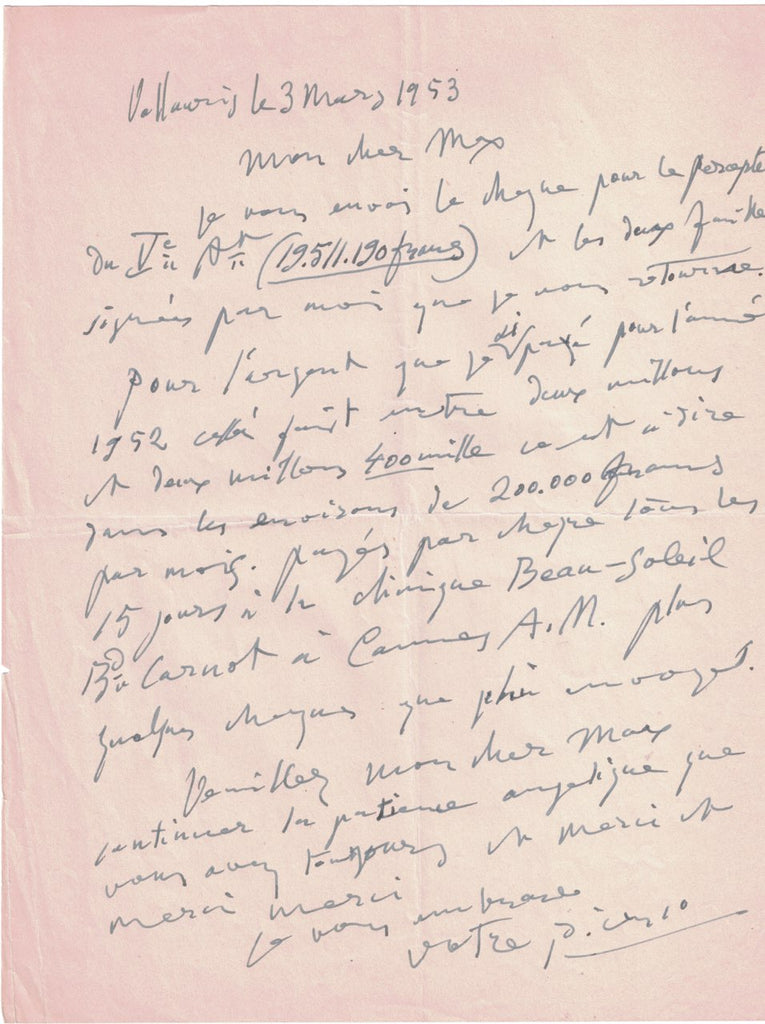 Vallauris le 3 Mars 1953
Mon cher Max
je vous envois le cheque pour le percepte
du Ve Art (19.511.190 francs) et les deux feuille
signées par moi que je vous retourne.
Pour l'argent que je ai payé pour l'année
1952 fait entre deux millons
et deux millons 400 mille ce est a dire
dans les environs de 200.000 francs
par mois. payés par cheque tous les
15 jours à la clinique Beau-Soleil
Bd Carnot à Cannes A.M. plus
quelques cheques que envoyer.
Veuillez mon cher Max
continuer la patience angelique que
vous avez toujours et merci et
merci merci
je vous embrasse
votre picasso